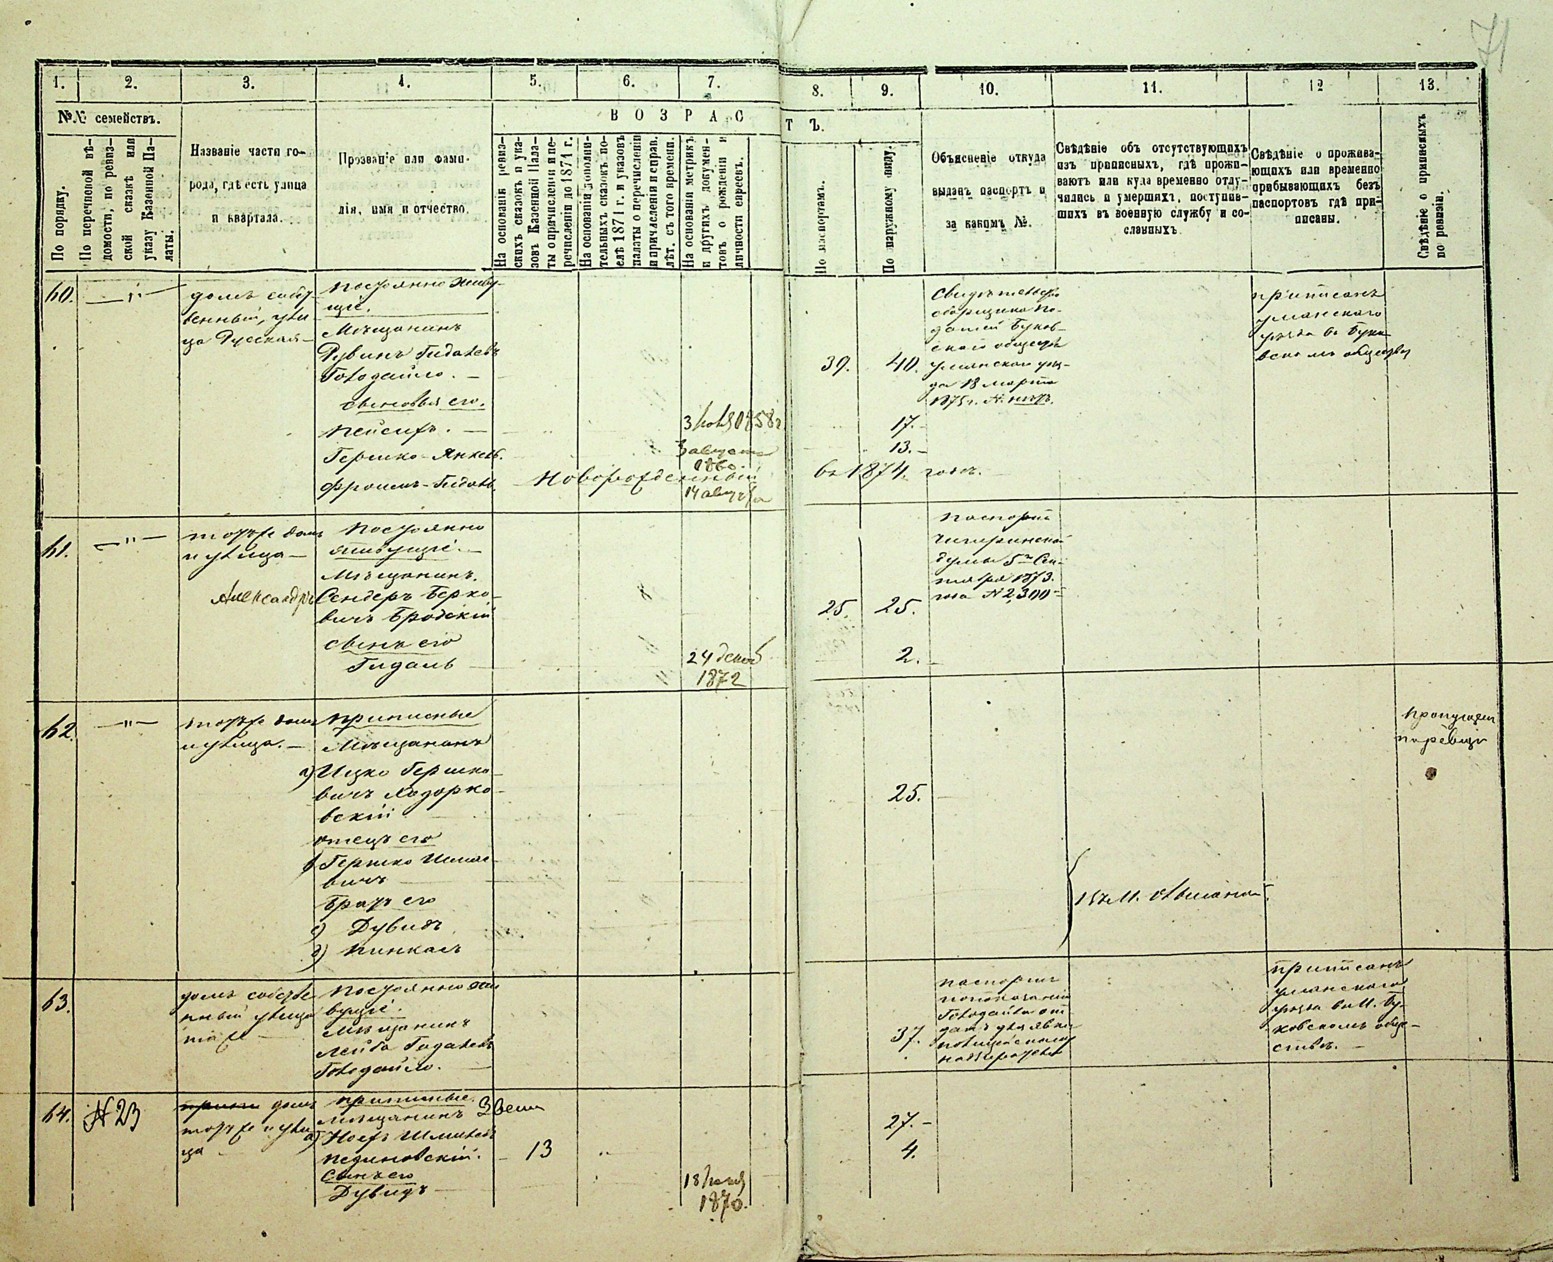 71
1. 2. 3. 4. 5. 6. 7. 8. 9. 10. 11. 12 13.
№№ семействъ.
По порядку.
По перечновой вѣ-
домости, по ревиз-
ской сказкѣ или
указу Казенной Па-
латы.
Названіе части го-
рода, гдѣ есть улица
и квартала.
Прозваніе или фами-
лія, имя и отчество.
ВОЗРАСТЪ.
На основаніи ревиз-
скихъ сказокъ и ука-
зовъ Казенной Пала-
ты о причисленіи и пе-
речисленіи до 1871 г.
На основаніи дополни-
тельныхъ сказокъ по-
слѣ 1871 г. и указовъ
палаты о перечисленіи
и причисленіи и исправ.
лѣт. съ того времени.
На основаніи метрикъ
и другихъ докумен-
товъ о рожденіи и
личности евреевъ.
По паспортамъ.
По наружному виду.
Объясненіе откуда
выданъ паспортъ и
за какимъ №.
Свѣдѣніе объ отсутствующихъ
изъ приписныхъ, гдѣ прожи-
ваютъ или куда временно отлу-
чились и умершихъ, поступив-
шихъ въ военную службу и со-
сланныхъ
Свѣдѣніе о прожива-
ющихъ или временно
прибывающихъ безъ
паспортовъ гдѣ при-
писаны.
Свѣдѣніе о приписныхъ
по ревизіи.
60. — „ —
домъ собст
венный, ули
ца Русская —
Постоянно живу-
щіе.
Мѣщанинъ
Рувинъ Гидалевъ
Голодайло. —
сыновья его.
Пейсихъ. —
Гершко-Янкель.
Фроимъ-Гидаль
3 ноя 1858 г.
3 августа
1860.
Новорожденный
14 августа
въ 1874 годъ.
39. 40.
17. —
13. —
Свидѣтельство
сборщика по-
датей Буков-
скаго общества
уманскаго уѣз-
да 18 марта
1875 г.
приписанъ
уманскаго
уѣзда въ Буко
вскомъ обществѣ
61. — „ —
тотъ же домъ
и улица —
Александръ
Постоянно
живущіе. —
Мѣщанинъ.
Сендеръ Берко-
вичъ Бродскій
сынъ его
Гидаль
24 декаб
1872
25. 25.
2. —
Паспортъ
чигиринской
думы 5го Сен-
тября 1873.
года № 2,300 —
62. — „ —
тотъ же домъ
и улица. —
Приписные
Мѣщанинъ
а) Ицко Гершко-
вичъ Ходорко-
вскій
отецъ его
Гершко
вичъ
братъ его
с) Дувидъ
д) Пинкасъ
25.
63.
домъ собстве
нный улица
та же —
Постоянно жи
вущіе.
Мѣщанинъ
Лейба Гидалевъ
Голодайло.
37.
паспортъ
по показанію
Голодайла от
данъ для явки
полицейскому
надзирателю
приписанъ
уманскаго
уѣзда въ М. Бу-
ковскомъ обще-
ствѣ. —
64. № 23
домъ
тотъ же и ули
ца
приписные.
мѣщанинъ
сынъ его
Дувидъ
13
18
1870.
27. —
4.